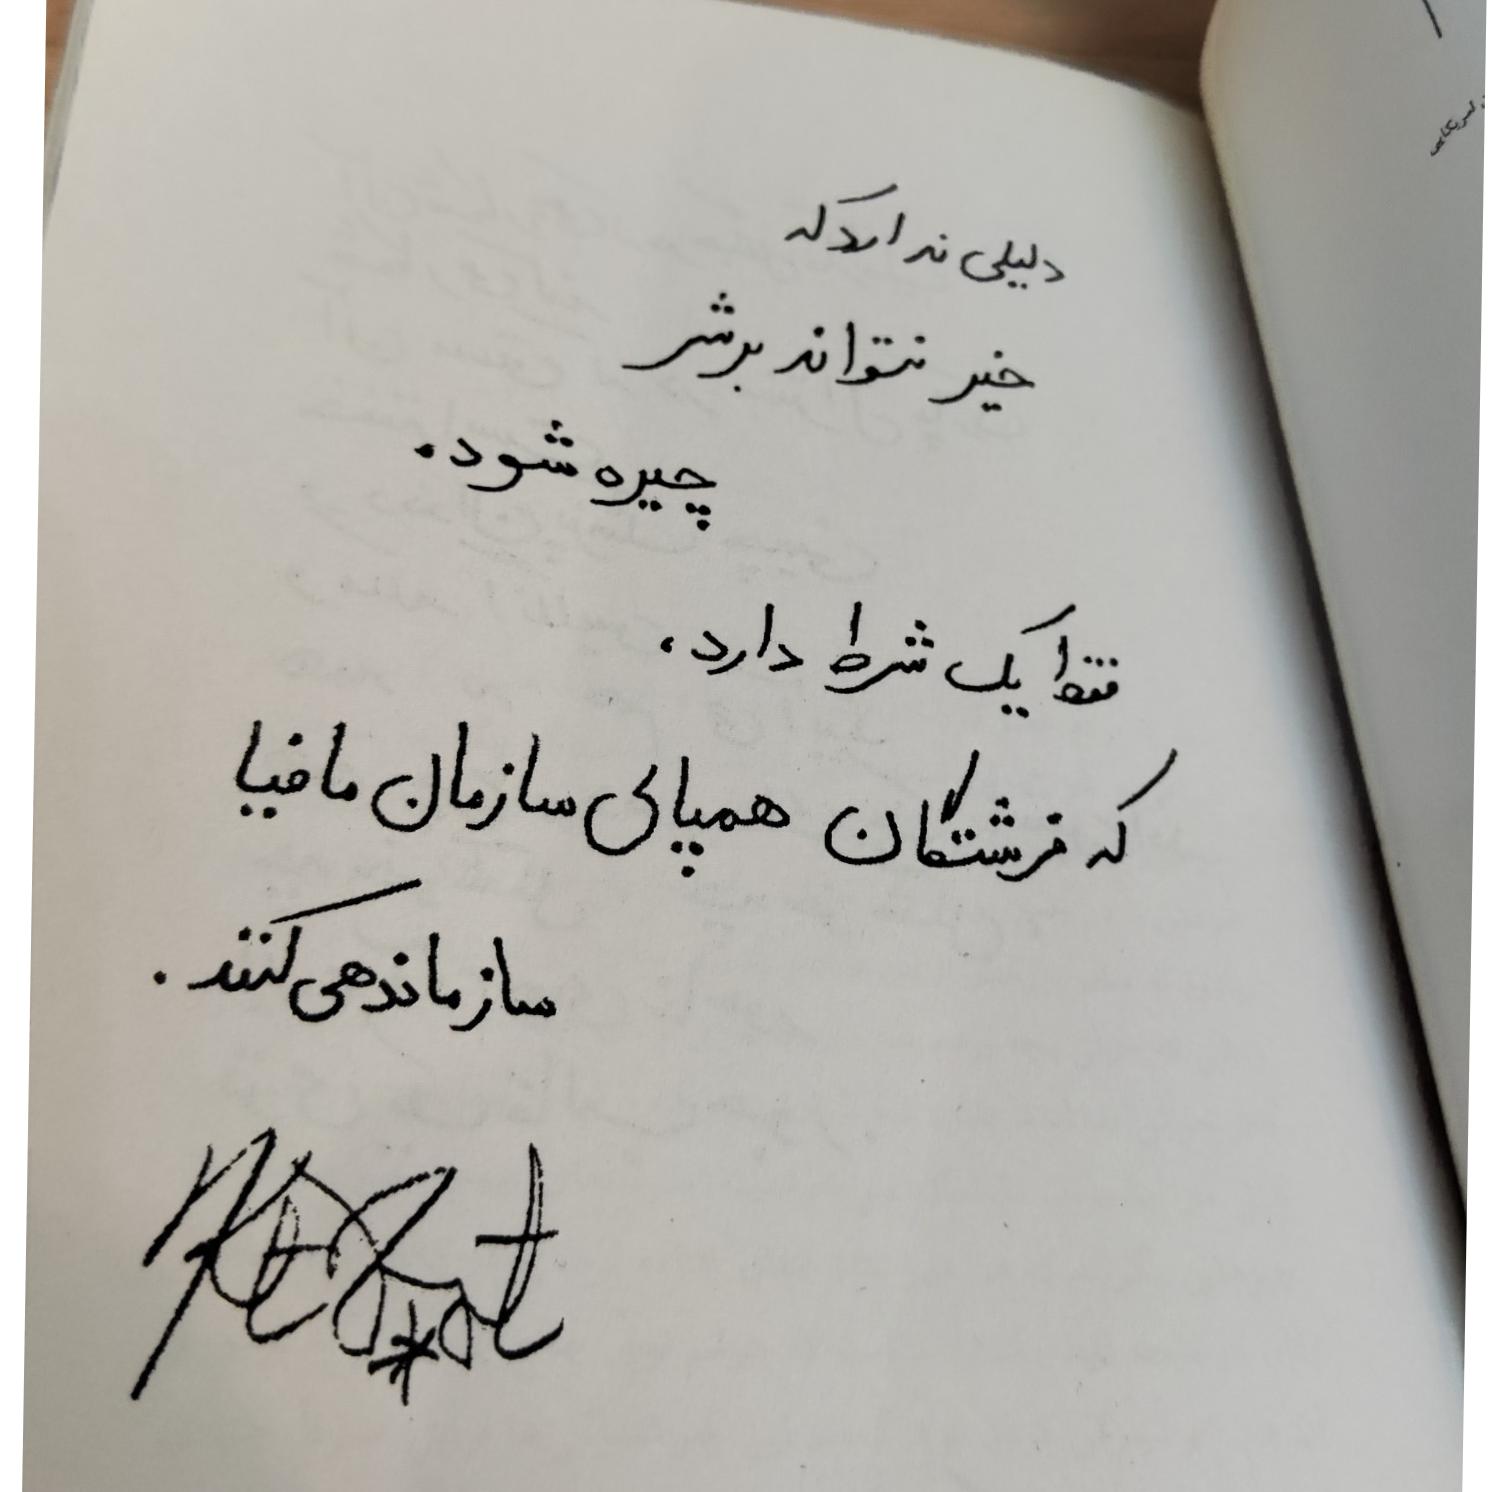 دلیلی ندارد که
خیر نتواند بر شر
چیره شود.
فقط یک شرط دارد،
که فرشتگان همپای سازمان مافیا
سازماندهی کنند.